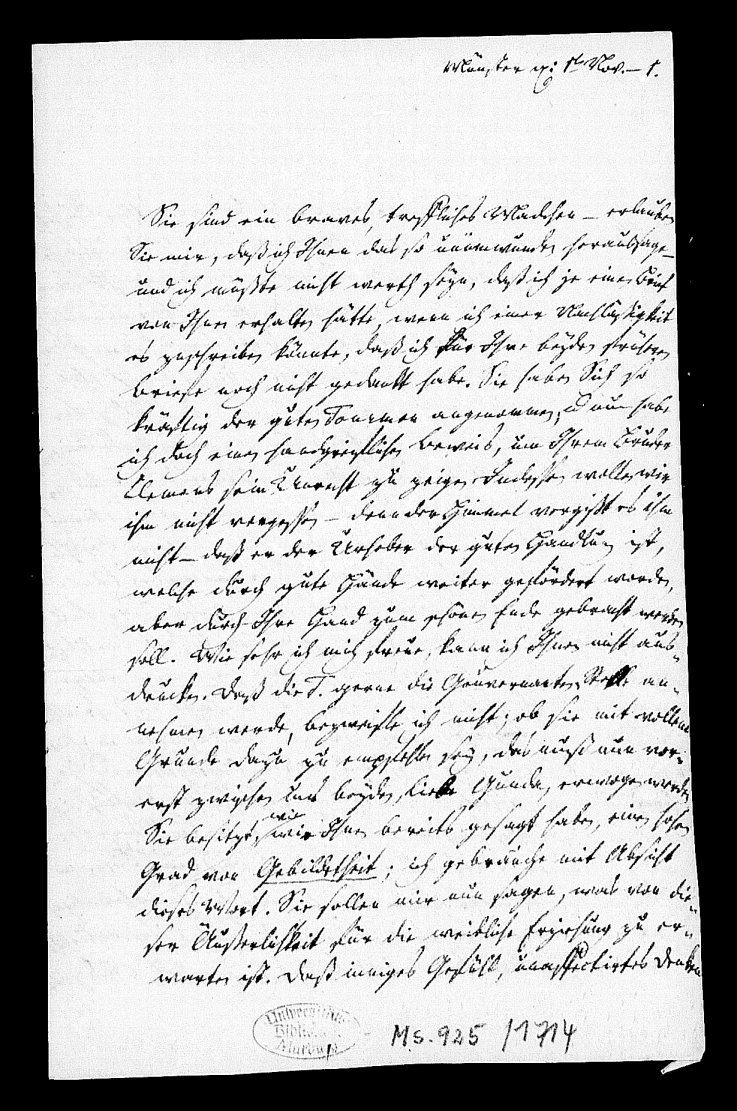 Münster d. 1t Nov. – 1.
Sie sind ein braves, treffliches Mädchen – erlauben
Sie mir, daß ich Ihnen das so unumwunden heraussage –
und ich müßte nicht werth seyn, daß ich je einen Brief
von Ihnen erhalten hätte, wenn ich einer Nachläßigkeit
es zuschreiben könnte, daß ich für Ihre beyden frühern
Briefe noch nicht gedankt habe. Sie haben Sich so
kräftig der guten angenommen, u nun habe
ich doch einen handgreiflichen Beweis, um Ihrem Bruder
Clemens sein Unrecht zu zeigen. Indessen wollen wir
ihm nicht vergessen – denn der Himmel vergißt es ihm
nicht – daß er der Urheber der guten Handlung ist,
welche durch gute Hände weiter gefördert worden,
aber durch Ihre Hand zum schönen Ende gebracht werden
soll. Wie sehr ich mich freue, kann ich Ihnen nicht aus-
drucken. Daß die T. gerne die Gouvernanten Stelle an-
nehmen werde, bezweifle ich nicht; ob sie mit vollem
Grunde dazu zu empfehlen sey, das muß nun vor-
erst zwischen uns beyden, liebe Gunda, erwogen werden
Sie besitzt, wie wir Ihnen bereits gesagt haben, einen hohen
Grad von Gebildetheit; ich gebrauche mit Absicht
dieses Wort. Sie sollen mir nun sagen, was von die-
ser Äußerlichkeit für die weibliche Erziehung zu er-
warten ist. Daß inniges Gefühl, unaffectirtes Denken
Universitäts
Bibliothek
Marburg
Ms. 925 /1714